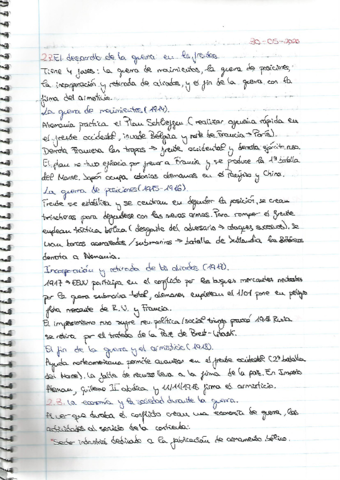 20-05-2020
2.2. El desarrollo de la guerra en los frentes.
Tiene 4 fases: la guerra de movimientos, la guerra de posiciones,
la incorporación y retirada de aliados, y el fin de la guerra con la
firma del armisticio.
La guerra de movimientos (1914).
Alemania practica el Plan Schlieffen (realizar agresión rápida en
el frente occidental, invade Bélgica y norte de Francia → París).
Derrota Francesa las tropas → frente occidental y derrota
El plan no tuvo eficacia por frenar a Francia, y se produce la 1ª batalla
del Marne. Japón ocupa colonias alemanas en el Pacífico y China.
La guerra de posiciones (1915-1916).
Frente se estabiliza y se centran en defender la posición, se crean
trincheras para defenderse con las nuevas armas. Para romper el frente
emplean táctica bélica (desgaste del adversario → ataques sucesivos). Se
usan barcos acorazados / submarinos → batalla de Jutlandia
derrota a Alemania.
Incorporación y retirada de los aliados (1917).
1917 → EEUU participa en el conflicto por los buques mercantes
por la guerra submarina total, alemanes emplean el 1/01 pone en peligro
flota mercante de R.U. y Francia.
El imperialismo ruso sufre rev. política/social Rusia
se retira por el tratado de la Paz de Brest-Litovsk.
El fin de la guerra y el armisticio (1918).
Ayuda norteamericana permite avanzar en el frente occidental (2ª batalla
del Marne). La falta de recursos lleva a la firma de la paz. En Imperio
Alemán, Guillermo II abdica y 11/11/1918 firma el armisticio.
2.3. La economía y la sociedad durante la guerra.
Al ver que duraba el conflicto crean una economía de guerra, las
actividades al servicio de la contienda:
·Sector industrial dedicado a la fabricación de armamento bélico.